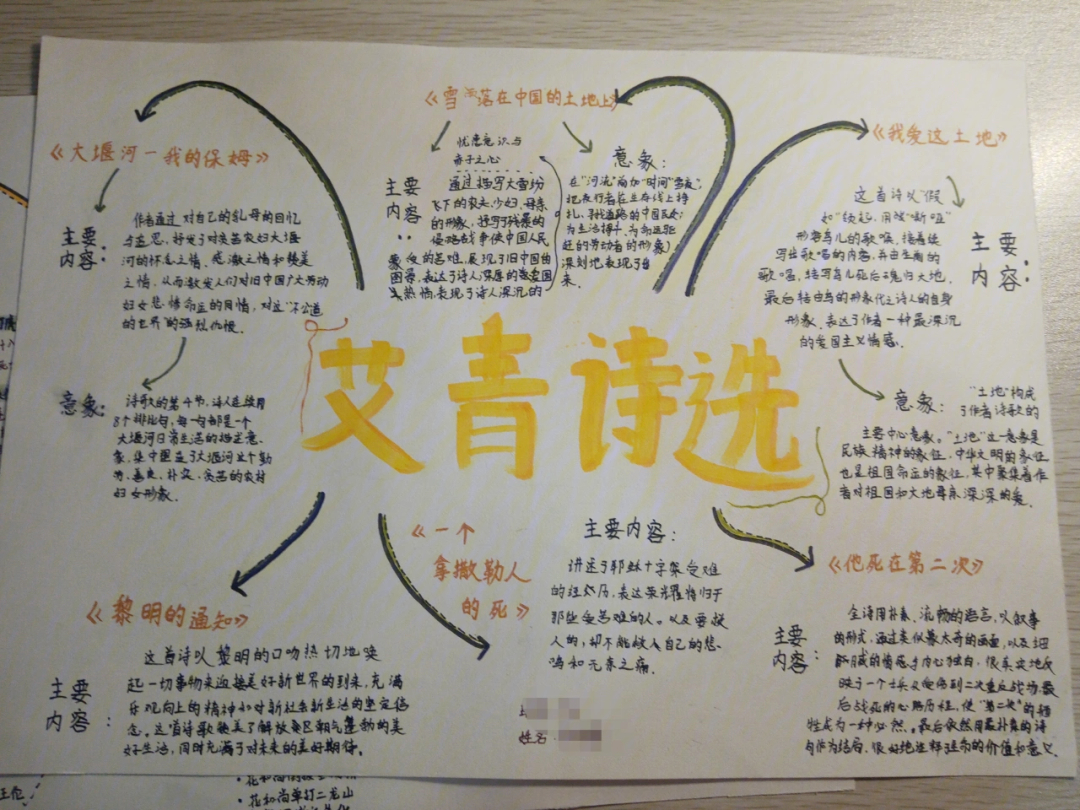 艾青诗选
《大堰河—我的保姆》
主要
内容:
作者通过对自己的乳母的回忆
与追思,抒发了对贫苦农妇大堰
河的怀念之情、感激之情和赞美
之情,从而激发人们对旧中国广大劳动
妇女悲惨命运的同情,对这“不公道
的世界”的强烈仇恨。
意象:
诗歌的第4节,诗人连续用
8个排比句,每一句都是一个
大堰河日常生活的描述意
象,集中
了大堰河这个勤
劳、善良、朴实、贫苦的农村
妇女形象。
《雪落在中国的土地上》
忧患意识与
赤子之心
主要
内容
:
通过描写大雪纷
飞下的农夫、少妇、母亲
的形象,抒写了残暴的
侵略战争使中国人民
蒙受的苦难,展现了旧中国的
图景,表达了诗人深厚的爱国
热情,表现了诗人深沉的
意象:
在“河流”前加“时间”“雪夜”,
把夜行者在生存线上挣
扎、寻找道路的中国民众;
为生活挣扎、为命运
赶的劳动者的形象
深刻地表现了出
来。
《我爱这土地》
主要
内容:
这首诗以“假
如”领起,用“嘶哑”
形容鸟儿的歌喉,接着续
写出歌唱的内容,并由生前的
歌唱,转写鸟儿死后魂归大地,
最后转由鸟的形象代之诗人的自身
形象,表达了作者一种最深沉
的爱国主义情感。
意象:
“土地”构成
了作者诗歌的
主要中心意象。“土地”这一意象是
民族精神的象征,中华文明的象征
也是祖国命运的象征,其中聚集着作
者对祖国和大地母亲深深的爱。
《黎明的通知》
主要
内容:
这首诗以黎明的口吻热切地唤
起一切事物来迎接美好新世界的到来,充满
乐观向上的精神和对新社会新生活的坚定信
念。这首诗歌赞美了解放与朝气蓬勃的美
好生活,同时充满了对未来的美好期待。
《一个
拿撒勒人
的死》
主要内容:
讲述了耶稣十字架受难
的经历,表达荣光
将归于
那些受苦难的人。以及要救
人的,却不能救自己的悲
鸣和无奈之痛。
姓名
《他死在第二次》
主要
内容:
全诗用朴素、流畅的语言,以叙事
的形式,通过类似蒙太奇的画面,以及细
腻的情感与内心独白,很真实地反
映了一个士兵从受伤到二次重返战场最
后战死的心路历程,使“第二次”的牺
牲成为一种必然。最后依然用最朴素的诗
句作为结局,很好地诠释生命的价值和意义
花和尚单打二龙山